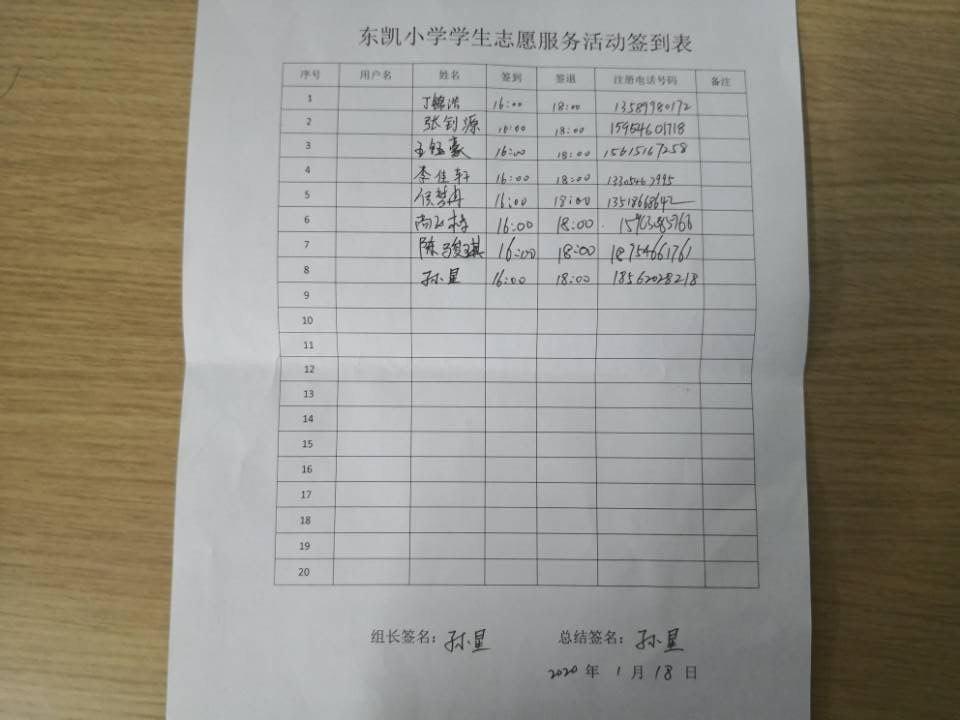 东凯小学学生志愿服务活动签到表
序号 用户名 姓名 签到 签退 注册电话号码 备注
1 丁锦浩 16:00 18:00 13589980172
2 张钊源 16:00 18:00 15954601718
3 王钰豪 16:00 18:00 15615167258
4 李佳轩 16:00 18:00
5 侯梦冉 16:00 18:00 13518668642
6 16:00 18:00
7 陈骏琪 16:00 18:00 18754661761
8 孙星 16:00 18:00 18562028218
9
10
11
12
13
14
15
16
17
18
19
20
组长签名：孙星 总结签名：孙星
2020 年 1 月 18 日